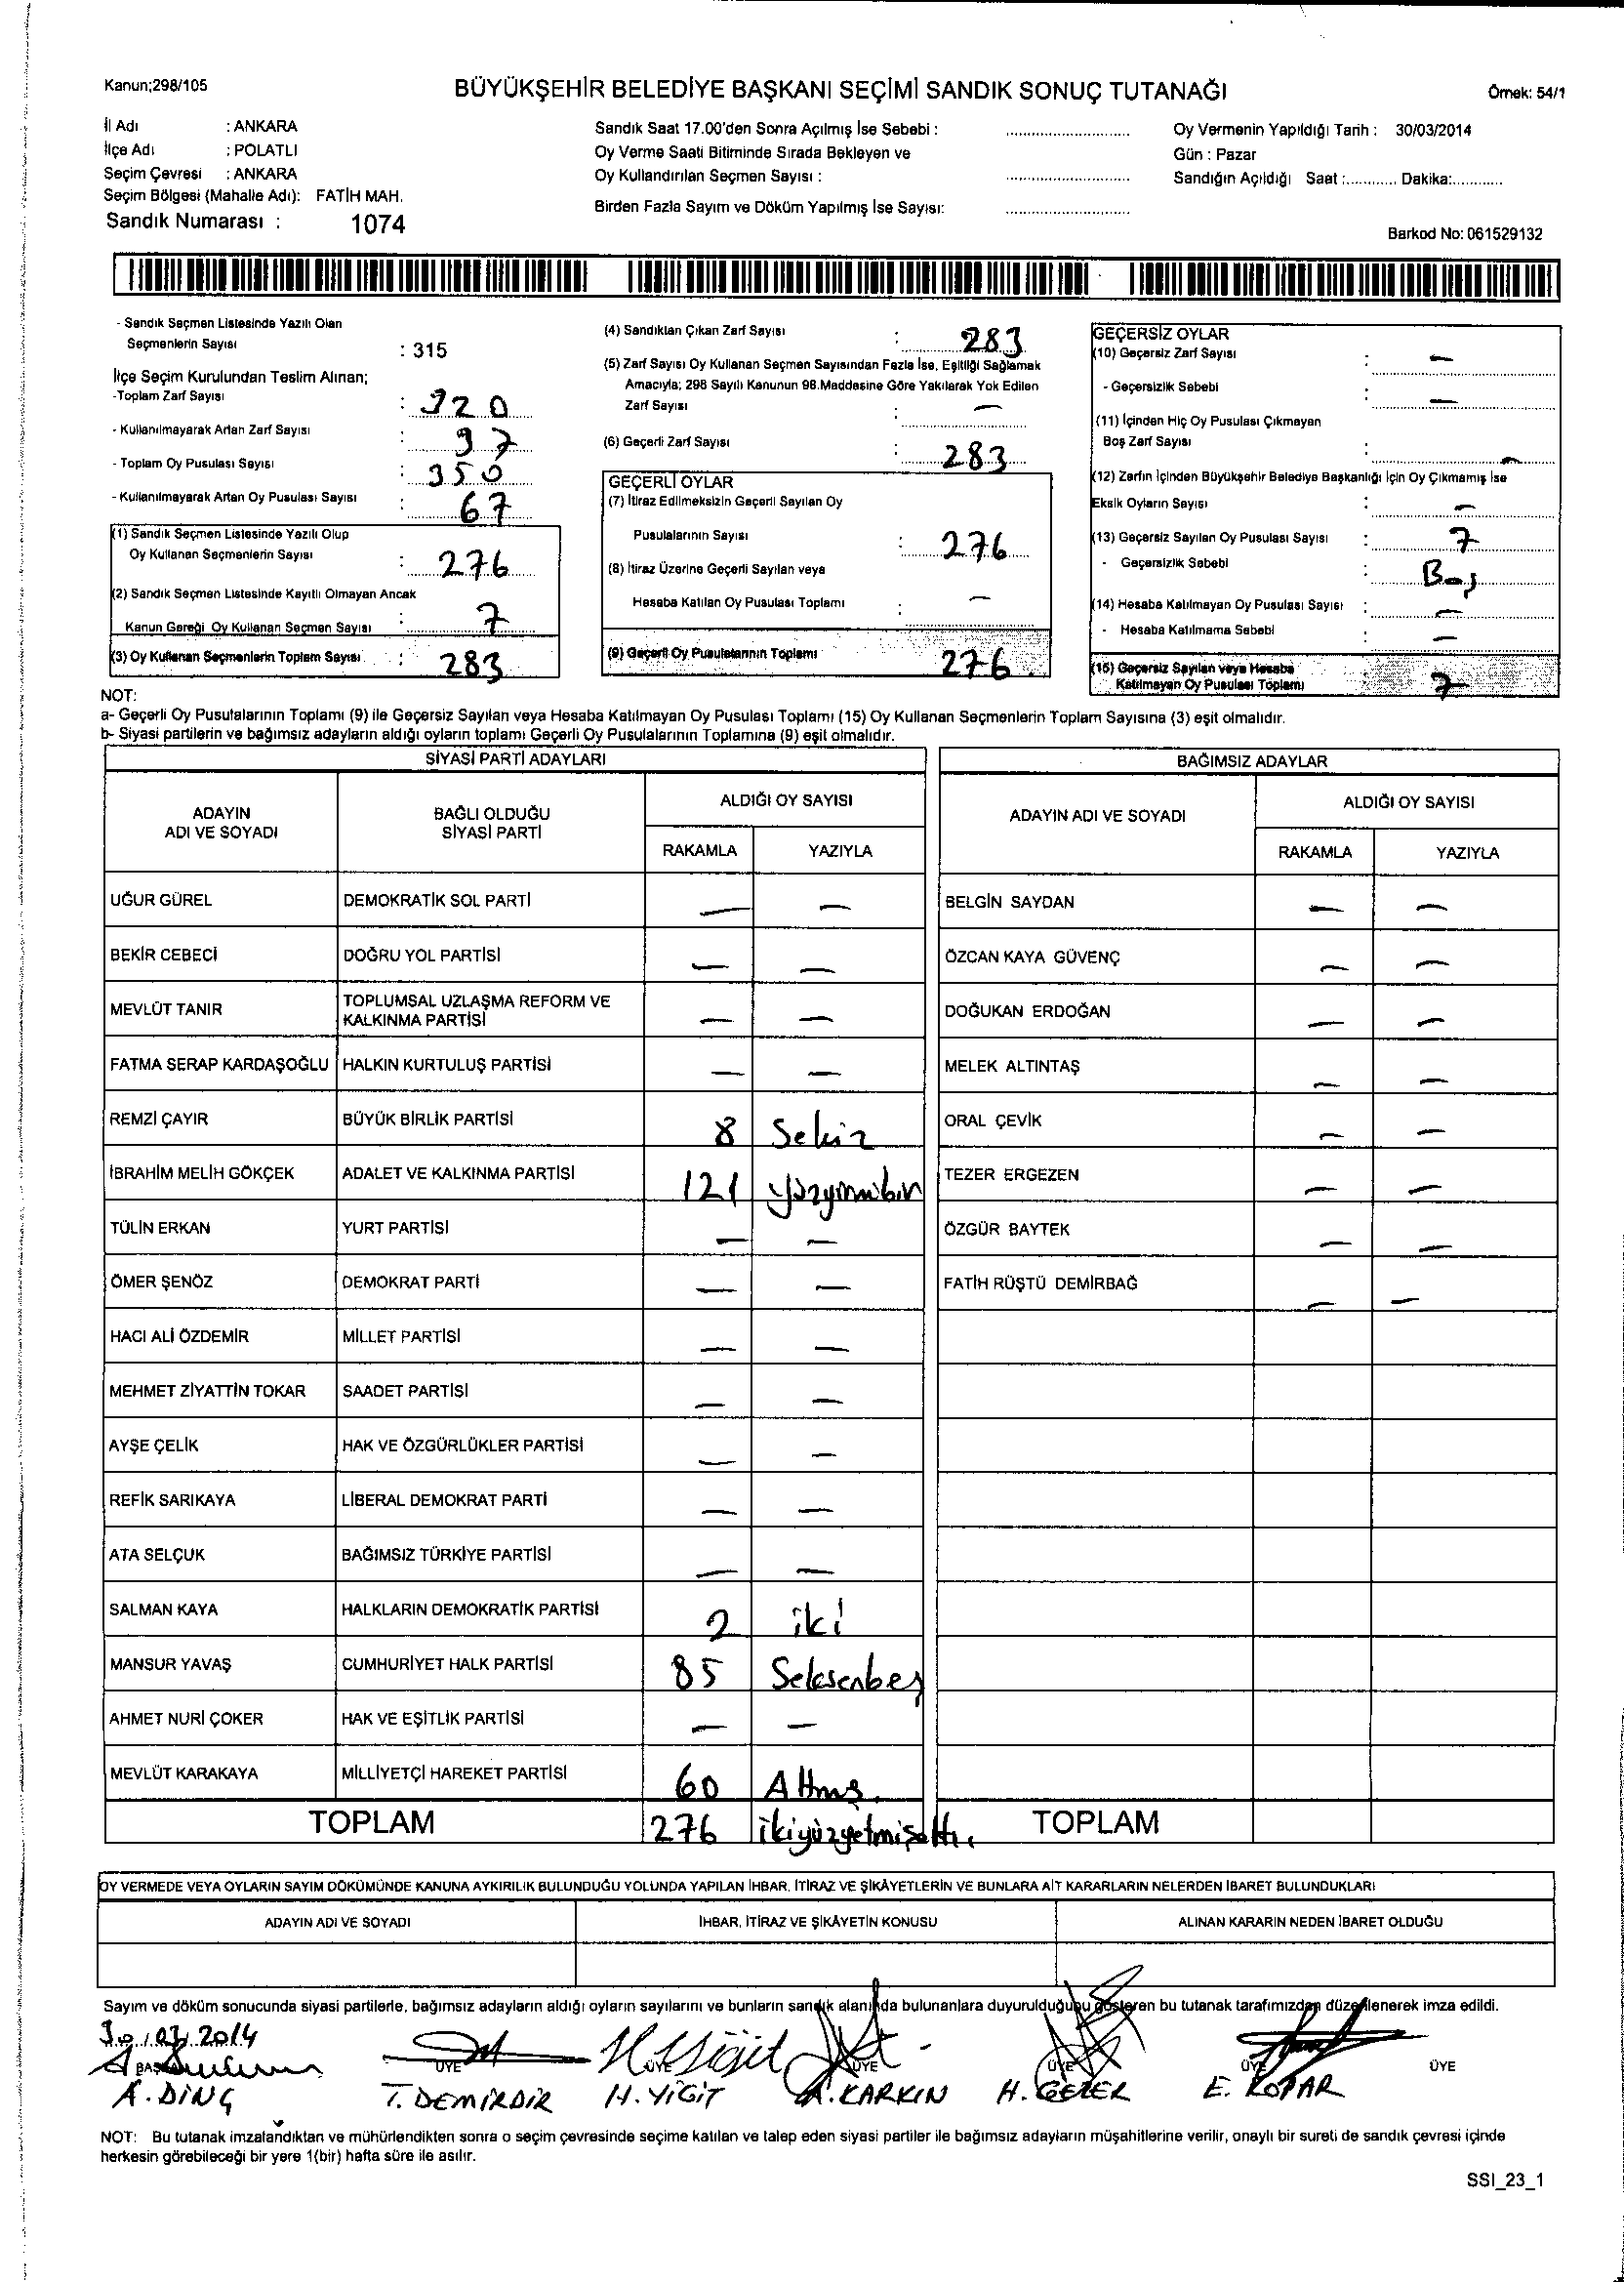 Kanun;298/105
BÜYÜKŞEHİR BELEDİYE BAŞKANI SEÇİMİ SANDIK SONUÇ TUTANAĞI
Örnek: 54/1
İl Adı : ANKARA
İlçe Adı : POLATLI
Seçim Çevresi : ANKARA
Seçim Bölgesi (Mahalle Adı): FATİH MAH.
Sandık Numarası : 1074
Sandık Saat 17.00'den Sonra Açılmış İse Sebebi :
Oy Verme Saati Bitiminde Sırada Bekleyen ve
Oy Kullandırılan Seçmen Sayısı :
Birden Fazla Sayım ve Döküm Yapılmış İse Sayısı:
Oy Vermenin Yapıldığı Tarih : 30/03/2014
Gün : Pazar
Sandığın Açıldığı Saat :............ Dakika:............
Barkod No: 061529132
- Sandık Seçmen Listesinde Yazılı Olan
Seçmenlerin Sayısı : 315
İlçe Seçim Kurulundan Teslim Alınan;
-Toplam Zarf Sayısı : 320
- Kullanılmayarak Artan Zarf Sayısı : 37
- Toplam Oy Pusulası Sayısı : 350
- Kullanılmayarak Artan Oy Pusulası Sayısı : 67
(1) Sandık Seçmen Listesinde Yazılı Olup
Oy Kullanan Seçmenlerin Sayısı : 276
(2) Sandık Seçmen Listesinde Kayıtlı Olmayan Ancak
Kanun Gereği Oy Kullanan Seçmen Sayısı : 7
(3) Oy Kullanan Seçmenlerin Toplam Sayısı : 283
(4) Sandıktan Çıkan Zarf Sayısı : 283
(5) Zarf Sayısı Oy Kullanan Seçmen Sayısından Fazla İse, Eşitliği Sağlamak
Amacıyla; 298 Sayılı Kanunun 98.Maddesine Göre Yakılarak Yok Edilen
Zarf Sayısı : —
(6) Geçerli Zarf Sayısı : 283
GEÇERLİ OYLAR
(7) İtiraz Edilmeksizin Geçerli Sayılan Oy
Pusulalarının Sayısı : 276
(8) İtiraz Üzerine Geçerli Sayılan veya
Hesaba Katılan Oy Pusulası Toplamı : —
(9) Geçerli Oy Pusulalarının Toplamı 276
GEÇERSİZ OYLAR
(10) Geçersiz Zarf Sayısı : —
- Geçersizlik Sebebi : —
(11) İçinden Hiç Oy Pusulası Çıkmayan
Boş Zarf Sayısı : —
(12) Zarfın İçinden Büyükşehir Belediye Başkanlığı İçin Oy Çıkmamış İse
Eksik Oyların Sayısı : —
(13) Geçersiz Sayılan Oy Pusulası Sayısı : 7
- Geçersizlik Sebebi : Boş
(14) Hesaba Katılmayan Oy Pusulası Sayısı : —
- Hesaba Katılmama Sebebi : —
(15) Geçersiz Sayılan veya Hesaba
Katılmayan Oy Pusulası Toplamı : 7
NOT:
a- Geçerli Oy Pusulalarının Toplamı (9) ile Geçersiz Sayılan veya Hesaba Katılmayan Oy Pusulası Toplamı (15) Oy Kullanan Seçmenlerin Toplam Sayısına (3) eşit olmalıdır.
b- Siyasi partilerin ve bağımsız adayların aldığı oyların toplamı Geçerli Oy Pusulalarının Toplamına (9) eşit olmalıdır.
SİYASİ PARTİ ADAYLARI
ADAYIN ADI VE SOYADI
BAĞLI OLDUĞU SİYASİ PARTİ
ALDIĞI OY SAYISI
RAKAMLA YAZIYLA
UĞUR GÜREL DEMOKRATİK SOL PARTİ — —
BEKİR CEBECİ DOĞRU YOL PARTİSİ — —
MEVLÜT TANIR TOPLUMSAL UZLAŞMA REFORM VE KALKINMA PARTİSİ — —
FATMA SERAP KARDAŞOĞLU HALKIN KURTULUŞ PARTİSİ — —
REMZİ ÇAYIR BÜYÜK BİRLİK PARTİSİ 8 Sekiz
İBRAHİM MELİH GÖKÇEK ADALET VE KALKINMA PARTİSİ 121 yüzyirmibir
TÜLİN ERKAN YURT PARTİSİ — —
ÖMER ŞENÖZ DEMOKRAT PARTİ — —
HACI ALİ ÖZDEMİR MİLLET PARTİSİ — —
MEHMET ZİYATTİN TOKAR SAADET PARTİSİ — —
AYŞE ÇELİK HAK VE ÖZGÜRLÜKLER PARTİSİ — —
REFİK SARIKAYA LİBERAL DEMOKRAT PARTİ — —
ATA SELÇUK BAĞIMSIZ TÜRKİYE PARTİSİ — —
SALMAN KAYA HALKLARIN DEMOKRATİK PARTİSİ 2 iki
MANSUR YAVAŞ CUMHURİYET HALK PARTİSİ 85 Seksenbeş
AHMET NURİ ÇOKER HAK VE EŞİTLİK PARTİSİ — —
MEVLÜT KARAKAYA MİLLİYETÇİ HAREKET PARTİSİ 60 Altmış
TOPLAM 276 ikiyüzyetmişaltı
BAĞIMSIZ ADAYLAR
ADAYIN ADI VE SOYADI
ALDIĞI OY SAYISI
RAKAMLA YAZIYLA
BELGİN SAYDAN — —
ÖZCAN KAYA GÜVENÇ — —
DOĞUKAN ERDOĞAN — —
MELEK ALTINTAŞ — —
ORAL ÇEVİK — —
TEZER ERGEZEN — —
ÖZGÜR BAYTEK — —
FATİH RÜŞTÜ DEMİRBAĞ — —
TOPLAM
OY VERMEDE VEYA OYLARIN SAYIM DÖKÜMÜNDE KANUNA AYKIRILIK BULUNDUĞU YOLUNDA YAPILAN İHBAR, İTİRAZ VE ŞİKÂYETLERİN VE BUNLARA AİT KARARLARIN NELERDEN İBARET BULUNDUKLARI
ADAYIN ADI VE SOYADI
İHBAR, İTİRAZ VE ŞİKÂYETİN KONUSU
ALINAN KARARIN NEDEN İBARET OLDUĞU
Sayım ve döküm sonucunda siyasi partilerle, bağımsız adayların aldığı oyların sayılarını ve bunların sandık alanında bulunanlara duyurulduğunu gösteren bu tutanak tarafımızdan düzenlenerek imza edildi.
30.03.2014
ÜYE ÜYE ÜYE ÜYE ÜYE ÜYE
A. DİNÇ T. DEMİRDİR H. YİĞİT A. KARKIN H. GEZER E. KOPAR
NOT: Bu tutanak imzalandıktan ve mühürlendikten sonra o seçim çevresinde seçime katılan ve talep eden siyasi partiler ile bağımsız adayların müşahitlerine verilir, onaylı bir sureti de sandık çevresi içinde
herkesin görebileceği bir yere 1(bir) hafta süre ile asılır.
SSI_23_1